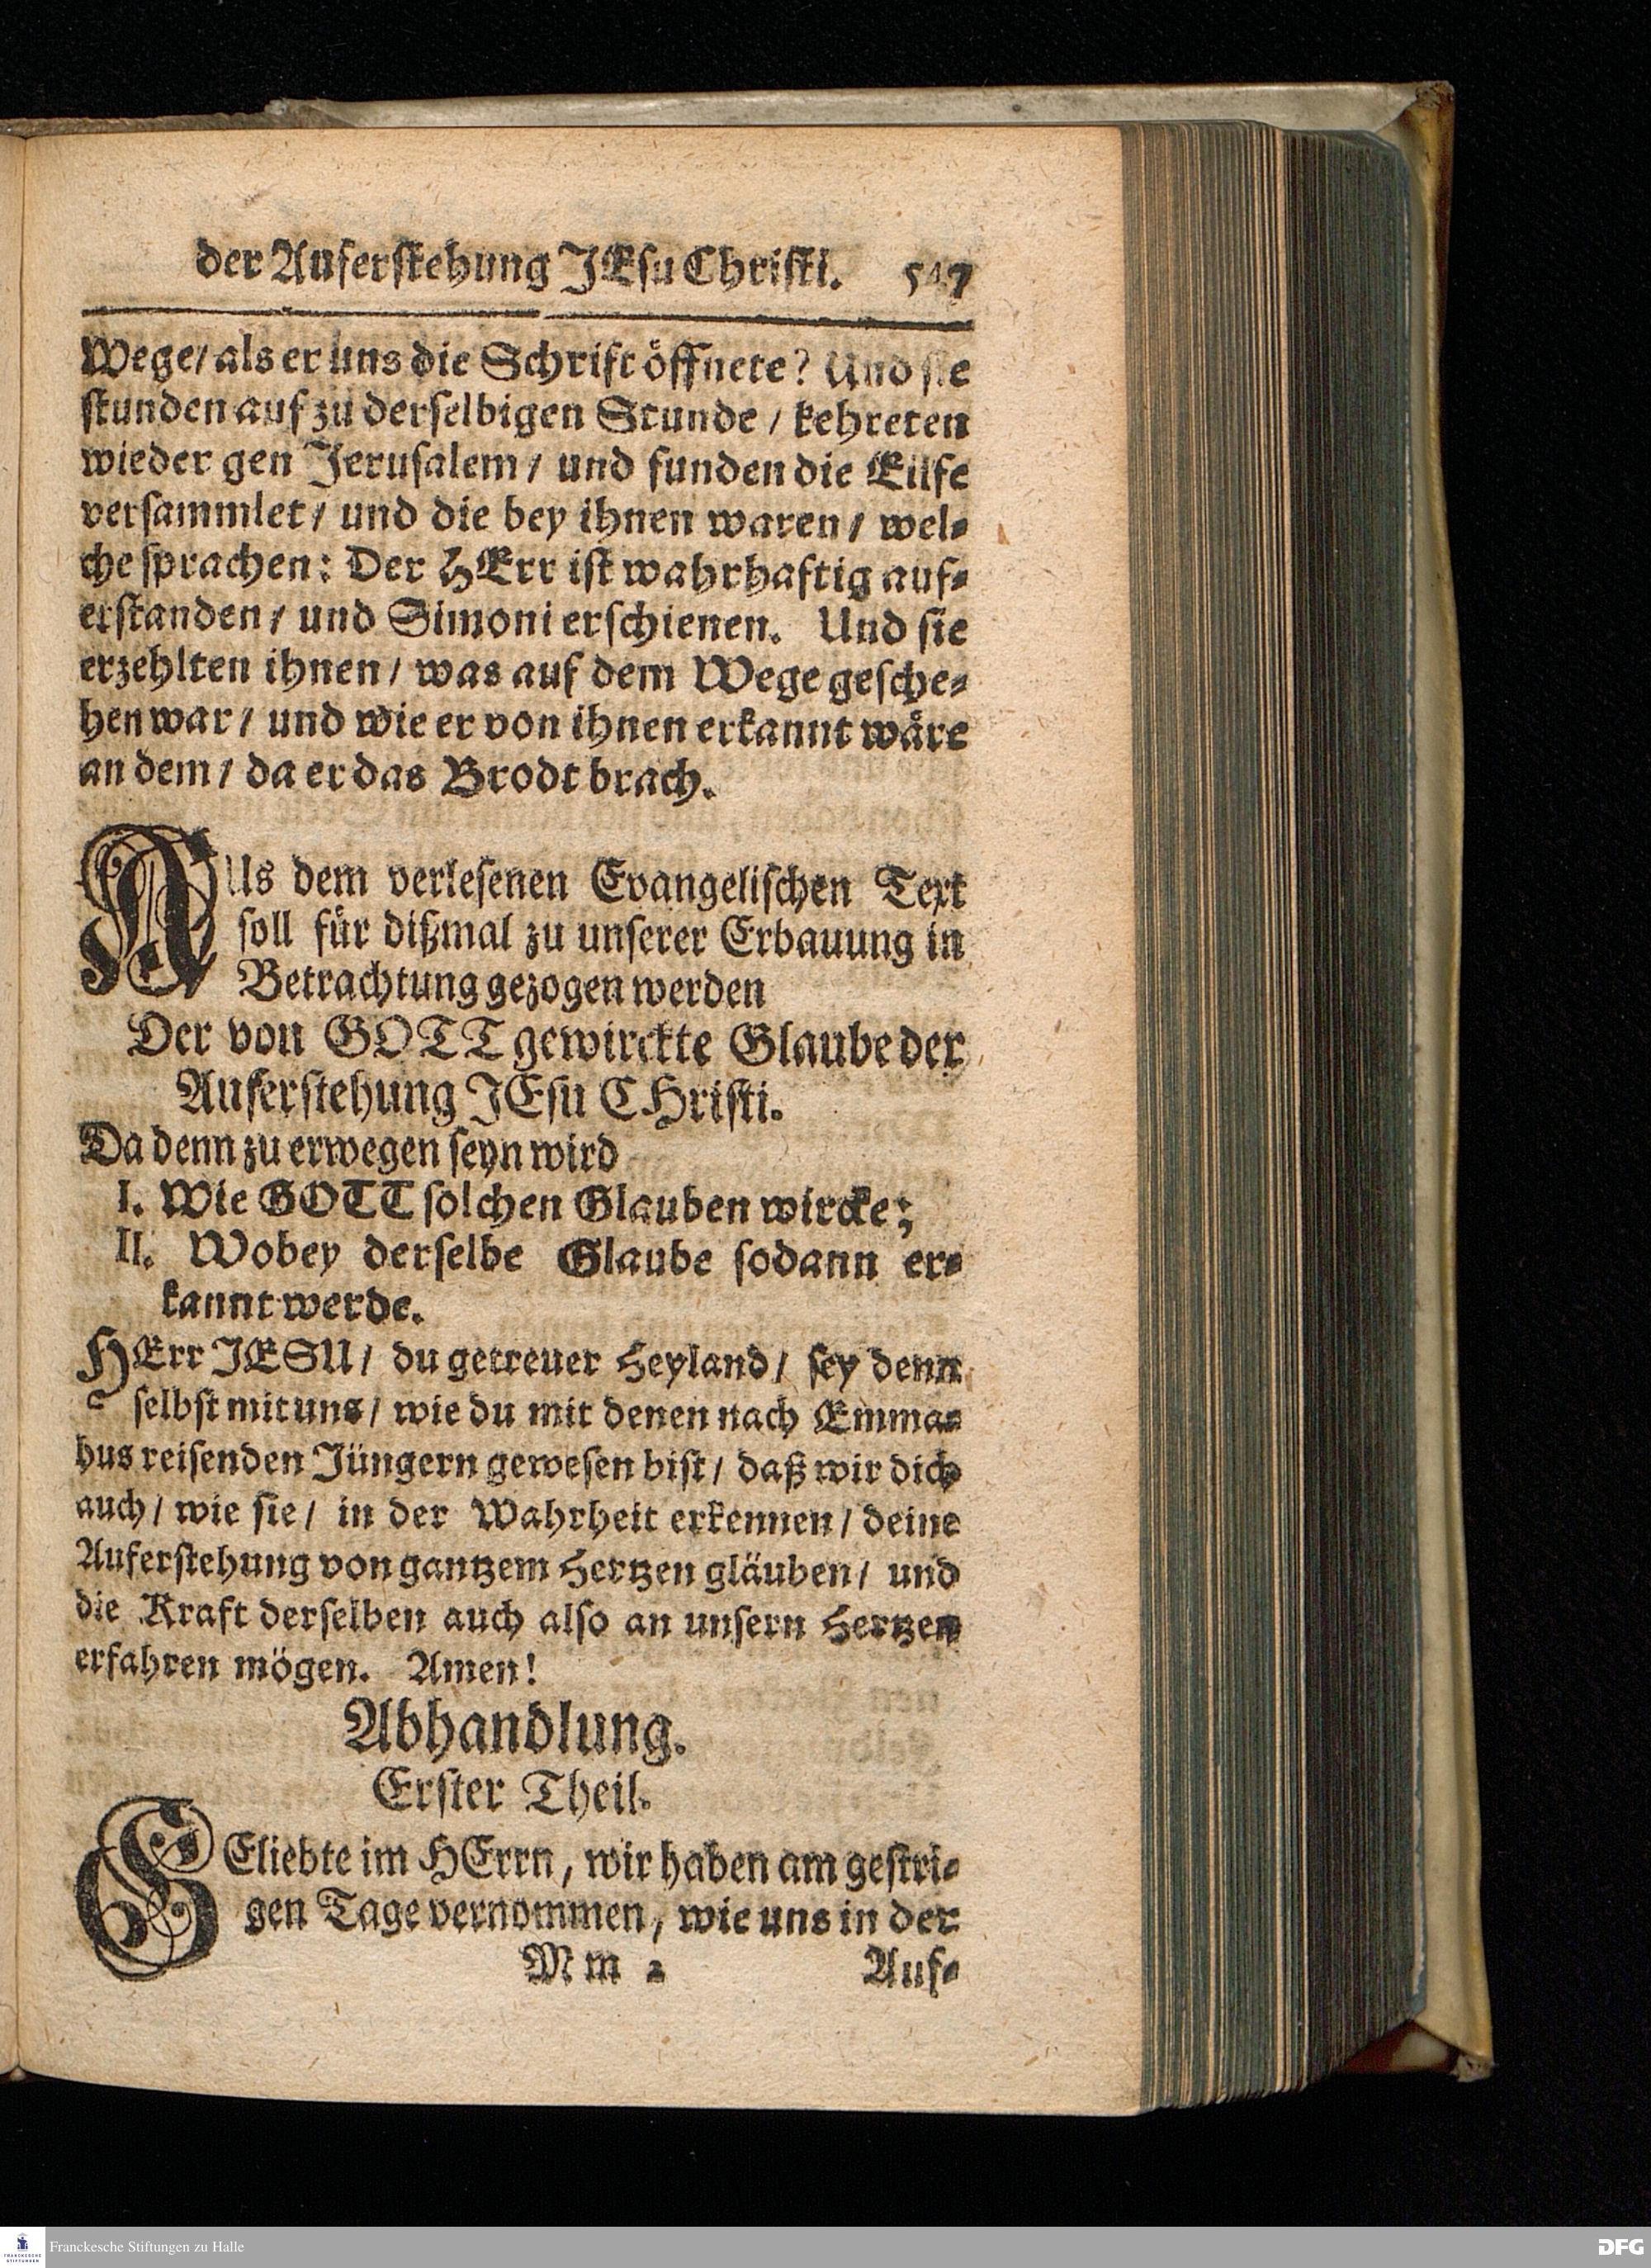 der Auferſtehung JEſu Chriſti. 547
Wege/ als er uns die Schrift öffnete? Und ſie
ſtunden auf zu derſelbigen Stunde / kehreten
wieder gen Jeruſalem / und funden die Eilfe
verſammlet / und die bey ihnen waren / wel-
che ſprachen: Der HErr iſt wahrhaftig auf-
erſtanden / und Simoni erſchienen. Und ſie
erzehlten ihnen / was auf dem Wege geſche-
hen war / und wie er von ihnen erkannt wåre
an dem / da er das Brodt brach.
AUs dem verleſenen Evangeliſchen Text
ſoll für dißmal zu unſerer Erbauung in
Betrachtung gezogen werden
Der von GOTT gewirckte Glaube der
Auferſtehung JEſu CHriſti.
Da denn zu erwegen ſeyn wird
I. Wie GOTT ſolchen Glauben wircke;
II. Wobey derſelbe Glaube ſodann er-
kannt werde.
HErr JESU / du getreuer Heyland / ſey denn
ſelbſt mit uns / wie du mit denen nach Emma-
hus reiſenden Jüngern geweſen biſt / daß wir dich
auch / wie ſie / in der Wahrheit erkennen / deine
Auferſtehung von gantzem Hertzen gläuben / und
die Kraft derſelben auch alſo an unſern Hertzen
erfahren mögen. Amen!
Abhandlung.
Erſter Theil.
GEliebte im HErrn, wir haben am geſtri-
gen Tage vernommen, wie uns in der
Mm 2 Auf-
Franckesche Stiftungen zu Halle
FRANCKESCHE STIFTUNGEN
DFG